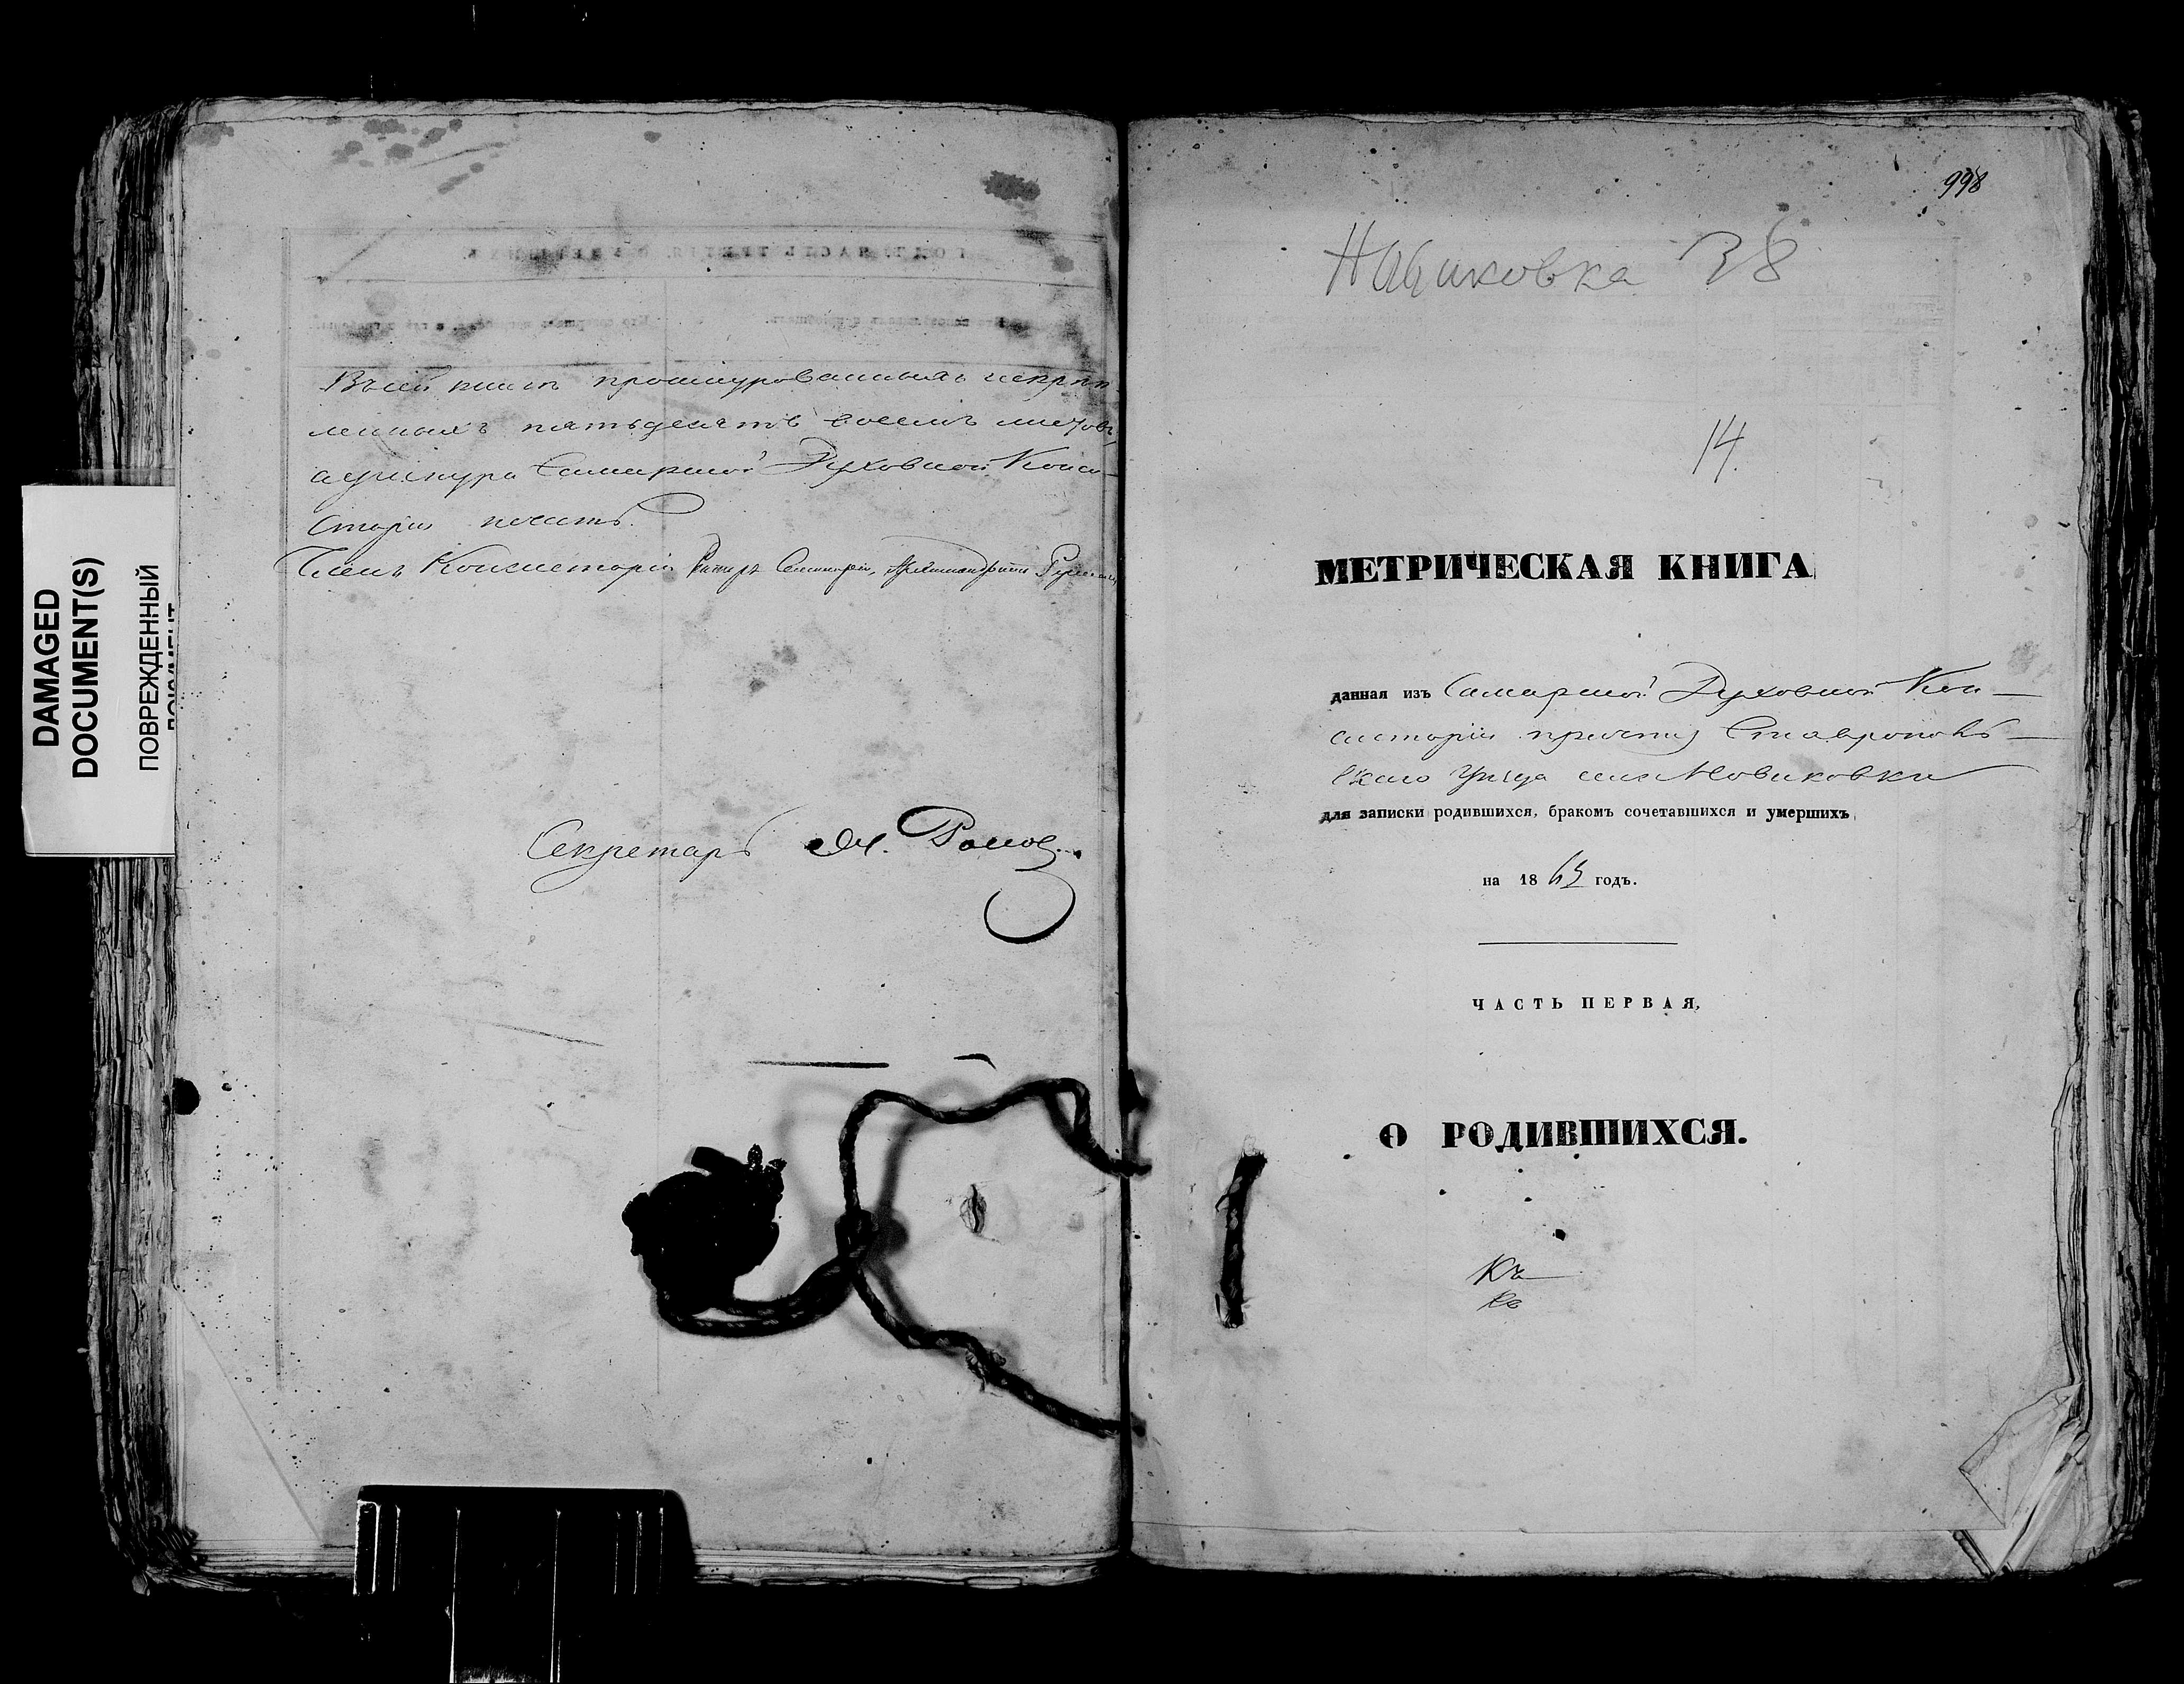 DAMAGED
DOCUMENT(S)
ПОВРЕЖДЕННЫЙ
ДОКУМЕНТ
Въ сей книгѣ прошнурованныхъ и скрѣп-
ленныхъ пятьдесятъ восемь листовъ,
а у шнура Самарской Духовной Конси-
сторіи печать.
Членъ Консисторіи Ректоръ Семинаріи, Архимандритъ
Секретарь
998
Новиковка 38
14.
МЕТРИЧЕСКАЯ КНИГА
данная изъ Самарской Духовной Кон-
систоріи причту Ставрополь-
скаго Уѣзда села Новиковки
для записки родившихся, бракомъ сочетавшихся и умершихъ
на 18 годъ.
ЧАСТЬ ПЕРВАЯ,
О РОДИВШИХСЯ.